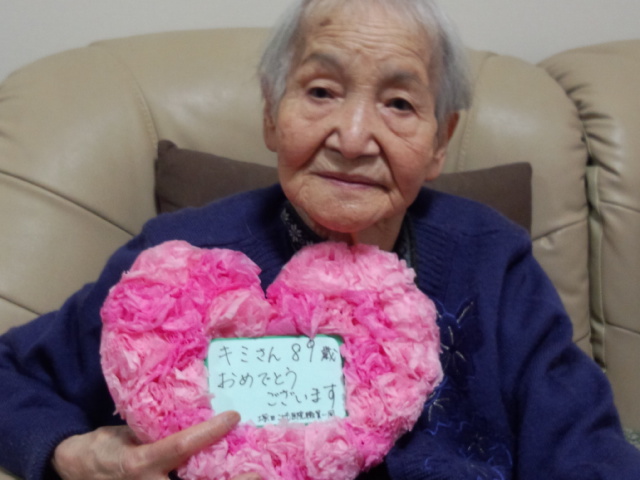 キミさん 89歳
おめでとう
ございます